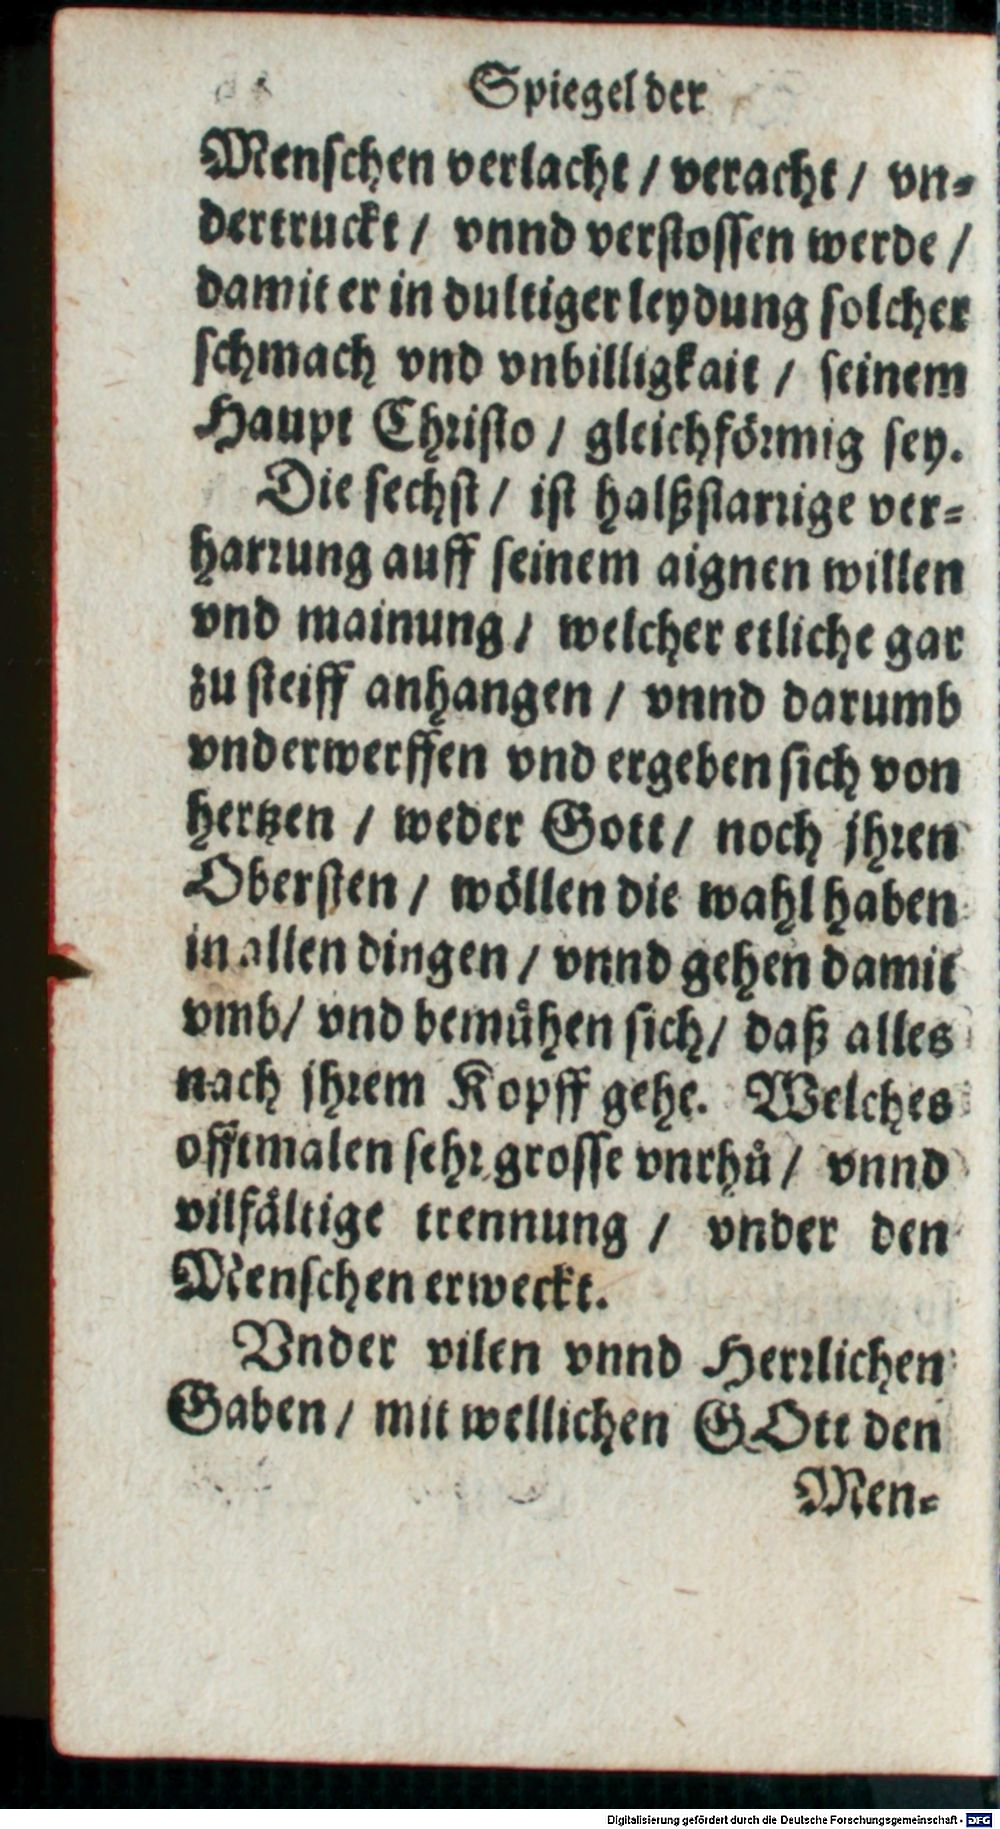 Spiegel der
Menschen verlacht / veracht / vn⸗
dertruckt / vnnd verstossen werde /
damit er in dultiger leydung solcher
schmach vnd vnbilligkait / seinem
Haupt Christo / gleichförmig sey.
Die sechst / ist halßstarrige ver⸗
harrung auff seinem aignen willen
vnd mainung / welcher etliche gar
zu steiff anhangen / vnnd darumb
vnderwerffen vnd ergeben sich von
hertzen / weder Gott / noch jhren
Obersten / wöllen die wahl haben
in allen dingen / vnnd gehen damit
vmb / vnd bemůhen sich / daß alles
nach jhrem Kopff gehe. Welches
offtmalen sehr grosse vnrhů / vnnd
vilfältige trennung / vnder den
Menschen erweckt.
Vnder vilen vnnd Herrlichen
Gaben / mit wellichen GOtt den
Men⸗
Digitalisierung gefördert durch die Deutsche Forschungsgemeinschaft - DFG